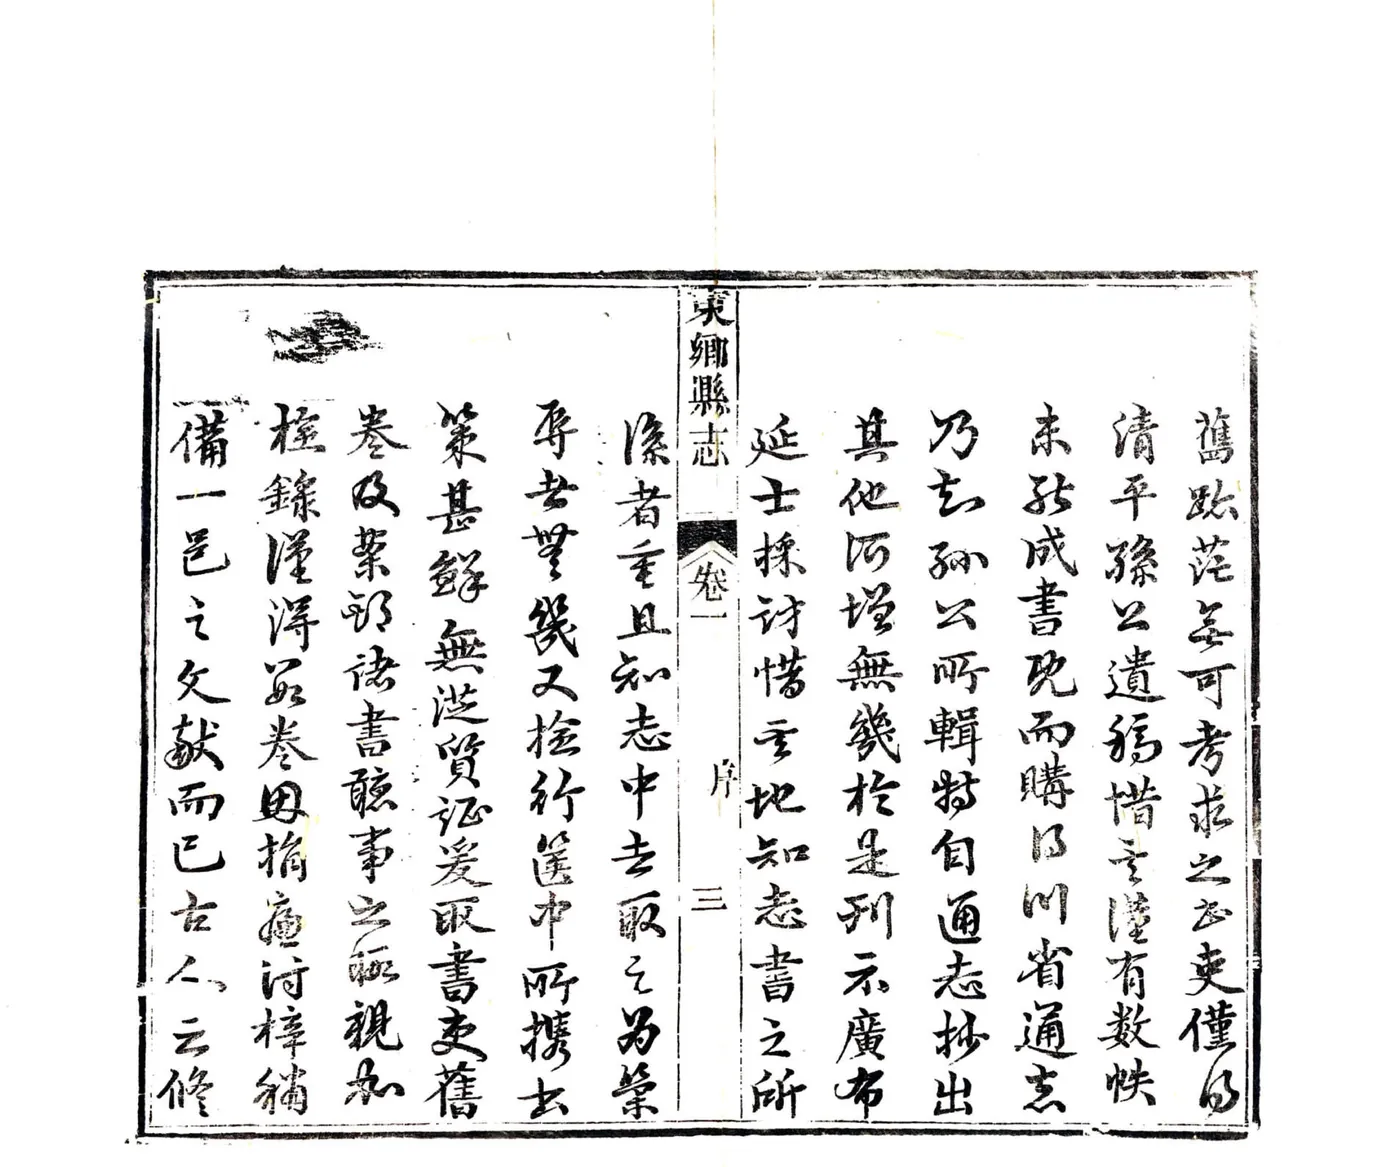 舊跡茫無可考求之老吏僅得
清平孫公遺稿惜其謹有数帙
未能成書既而購得川省通志
乃知孫公所輯特自通志抄出
其他何増無幾於是刊示廣布
延士採訪惜其地知志書之所
係者重且知志中去取之為
辱者無幾又檢行篋中所携出
策甚鮮無從質証爰取書吏舊
卷及諸書聽事之暇親加
檢錄謹得若卷因捐廉付梓稍
備一邑之文献而已古人云修
東鄉縣志
卷一
序
三